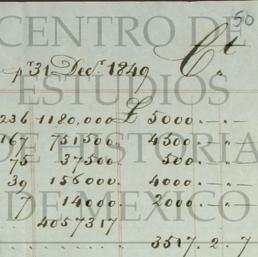 CENTRO DE
50
Ct
pr 31 Decr. 1849
ESTUDIOS
236 1180,000 £ 5000 . " . "
DE HISTORIA
167 751500 4500 . " . "
75 37500 500 . " . "
39 156000 4000 . " . "
7 14000 2000 . " . "
DE MEXICO
4057317
3517 . 2 . 7